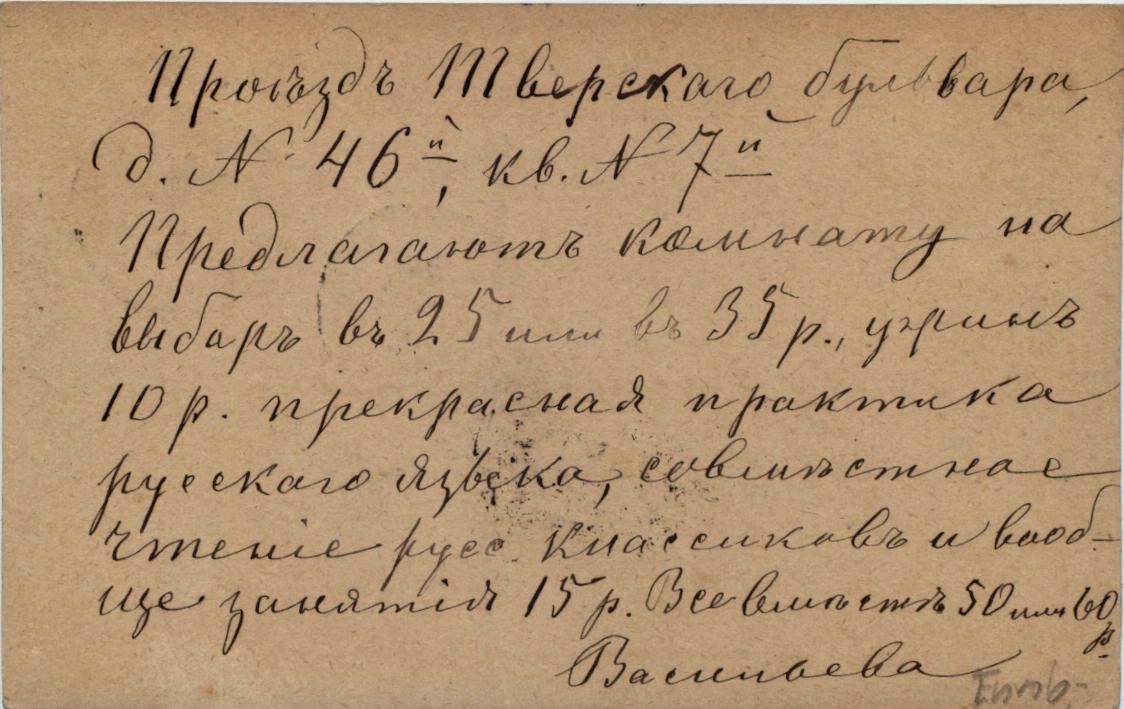 Проѣздъ Тверскаго бульвара,
д. N 46й, кв. N 7й
Предлагаютъ комнату на
выборъ въ 25 или въ 35 р.,
10 р. прекрасная практика
русскаго языка, совмѣстное
чтеніе русс. классиковъ и вооб-
ще занятія 15 р. Все вмѣстѣ 50 или 60 р.
Васильева